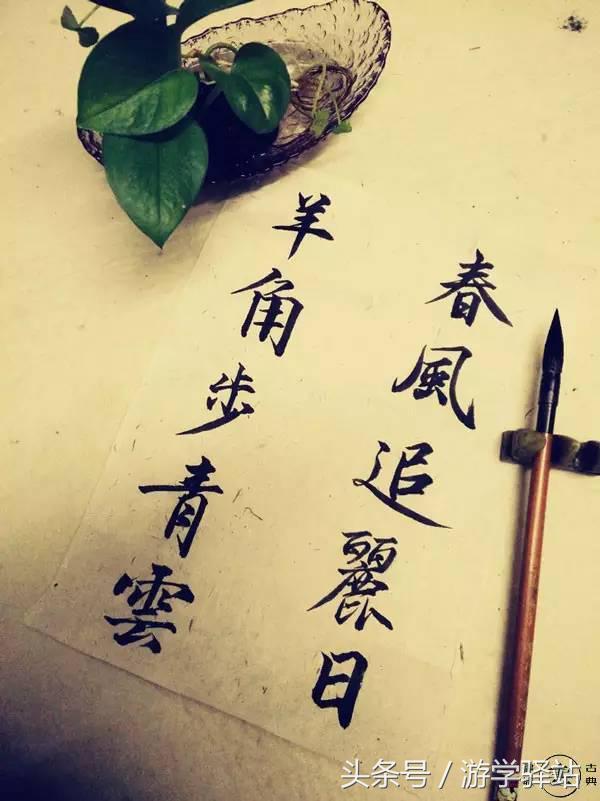 春風追麗日
羊角步青雲
头条号／游学驿站
古典